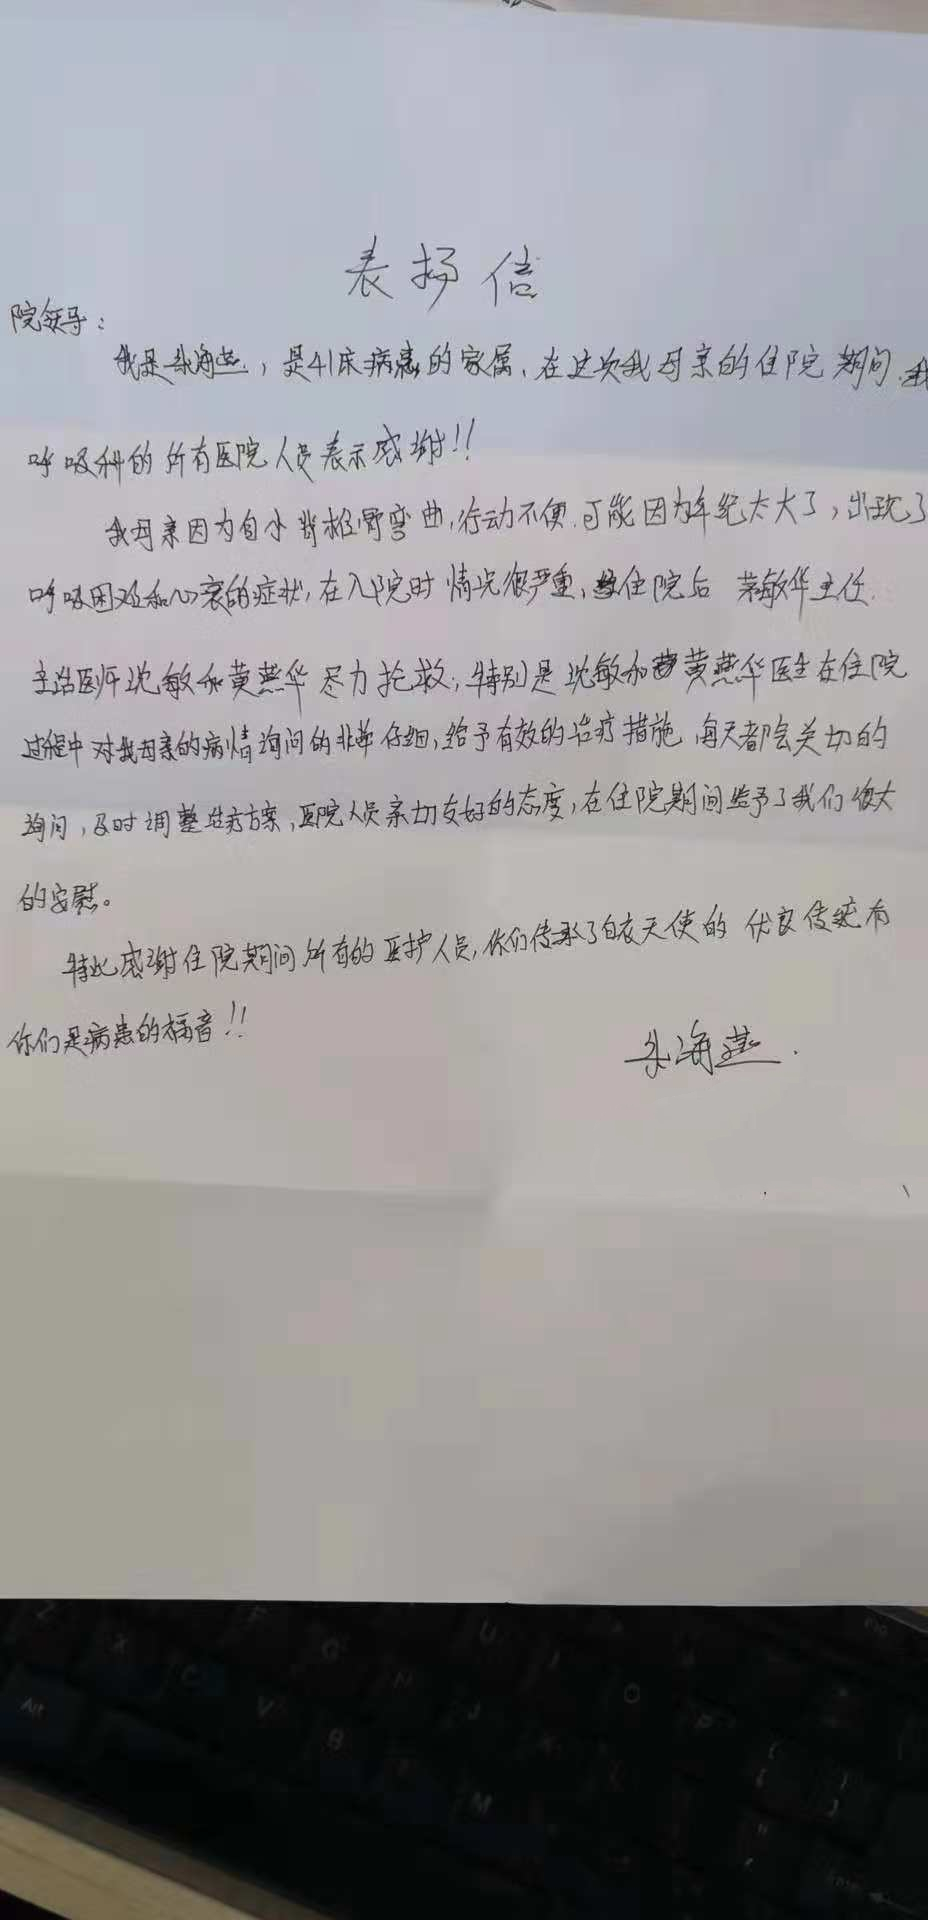 表扬信
院领导：
我是朱海燕，是41床病患的家属，在这次我母亲的住院期间，我
呼吸科的所有医院人员表示感谢！！
我母亲因为自小脊椎骨弯曲，行动不便，可能因为年纪太大了，出现了
呼吸困难和心衰的症状，在入院时情况很严重，住院后 茅敏华主任
主治医师沈敏和黄燕华尽力抢救，特别是沈敏和黄燕华医生在住院
过程中对我母亲的病情询问的非常仔细，给予有效的治疗措施，每天都会关切的
询问，及时调整治疗方案，医院人员亲切友好的态度，在住院期间给予了我们很大
的安慰。
特此感谢住院期间所有的医护人员，你们传承了白衣天使的优良传统有
你们是病患的福音！！
朱海燕
Z X C V B N M F G J U I O P Alt Enter